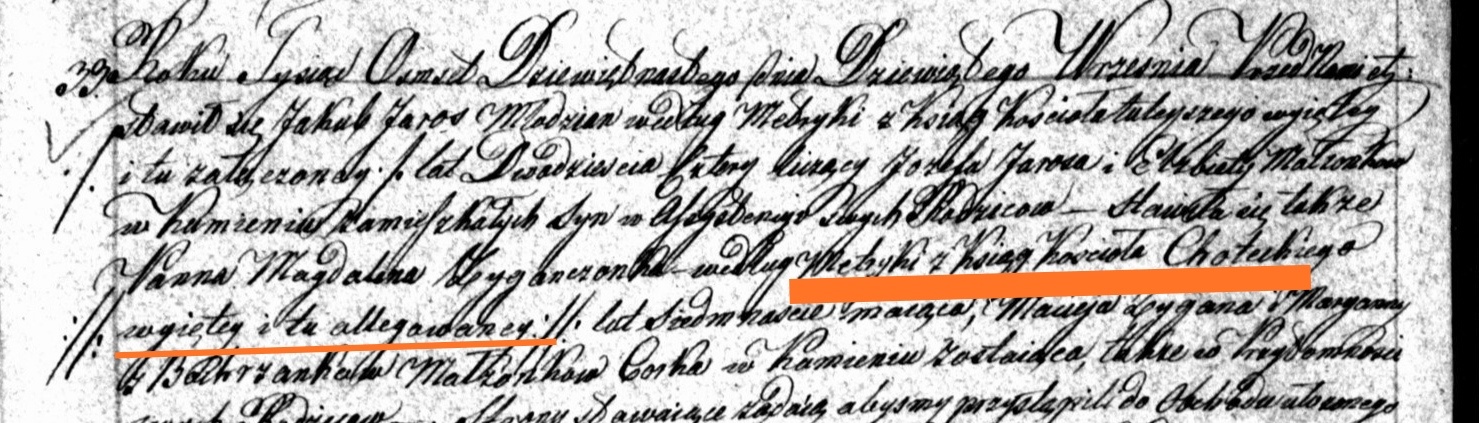 39. Roku Tysiąc Osmset Dziewiętnastego dnia Dziewiątego Września Przed Nami
stawił się Jakub Jaros Młodzian według Metryki z Ksiąg Kościoła tuteyszego wyiętey
i tu załączoney ·/. lat Dwadzieścia Cztery liczący Jozefa Jarosa i Elżbiety Małżonkow
w Kamieniu zamieszkałych Syn w Assystencyi swych Rodzicow — Stawiła się także
Panna Magdalena Cyganczonka według Metryki z Ksiąg Kościoła Choteckiego
wyiętey i tu allegowaney ://: lat Siedmnaście maiąca, Macieja Cygana i Maryanny
z Małżonkow Corka w Kamieniu zostaiąca, także w Przytomności
Rodzicow Strony stawaiące żądaią abyśmy przystąpili do Obchodu ułożonego